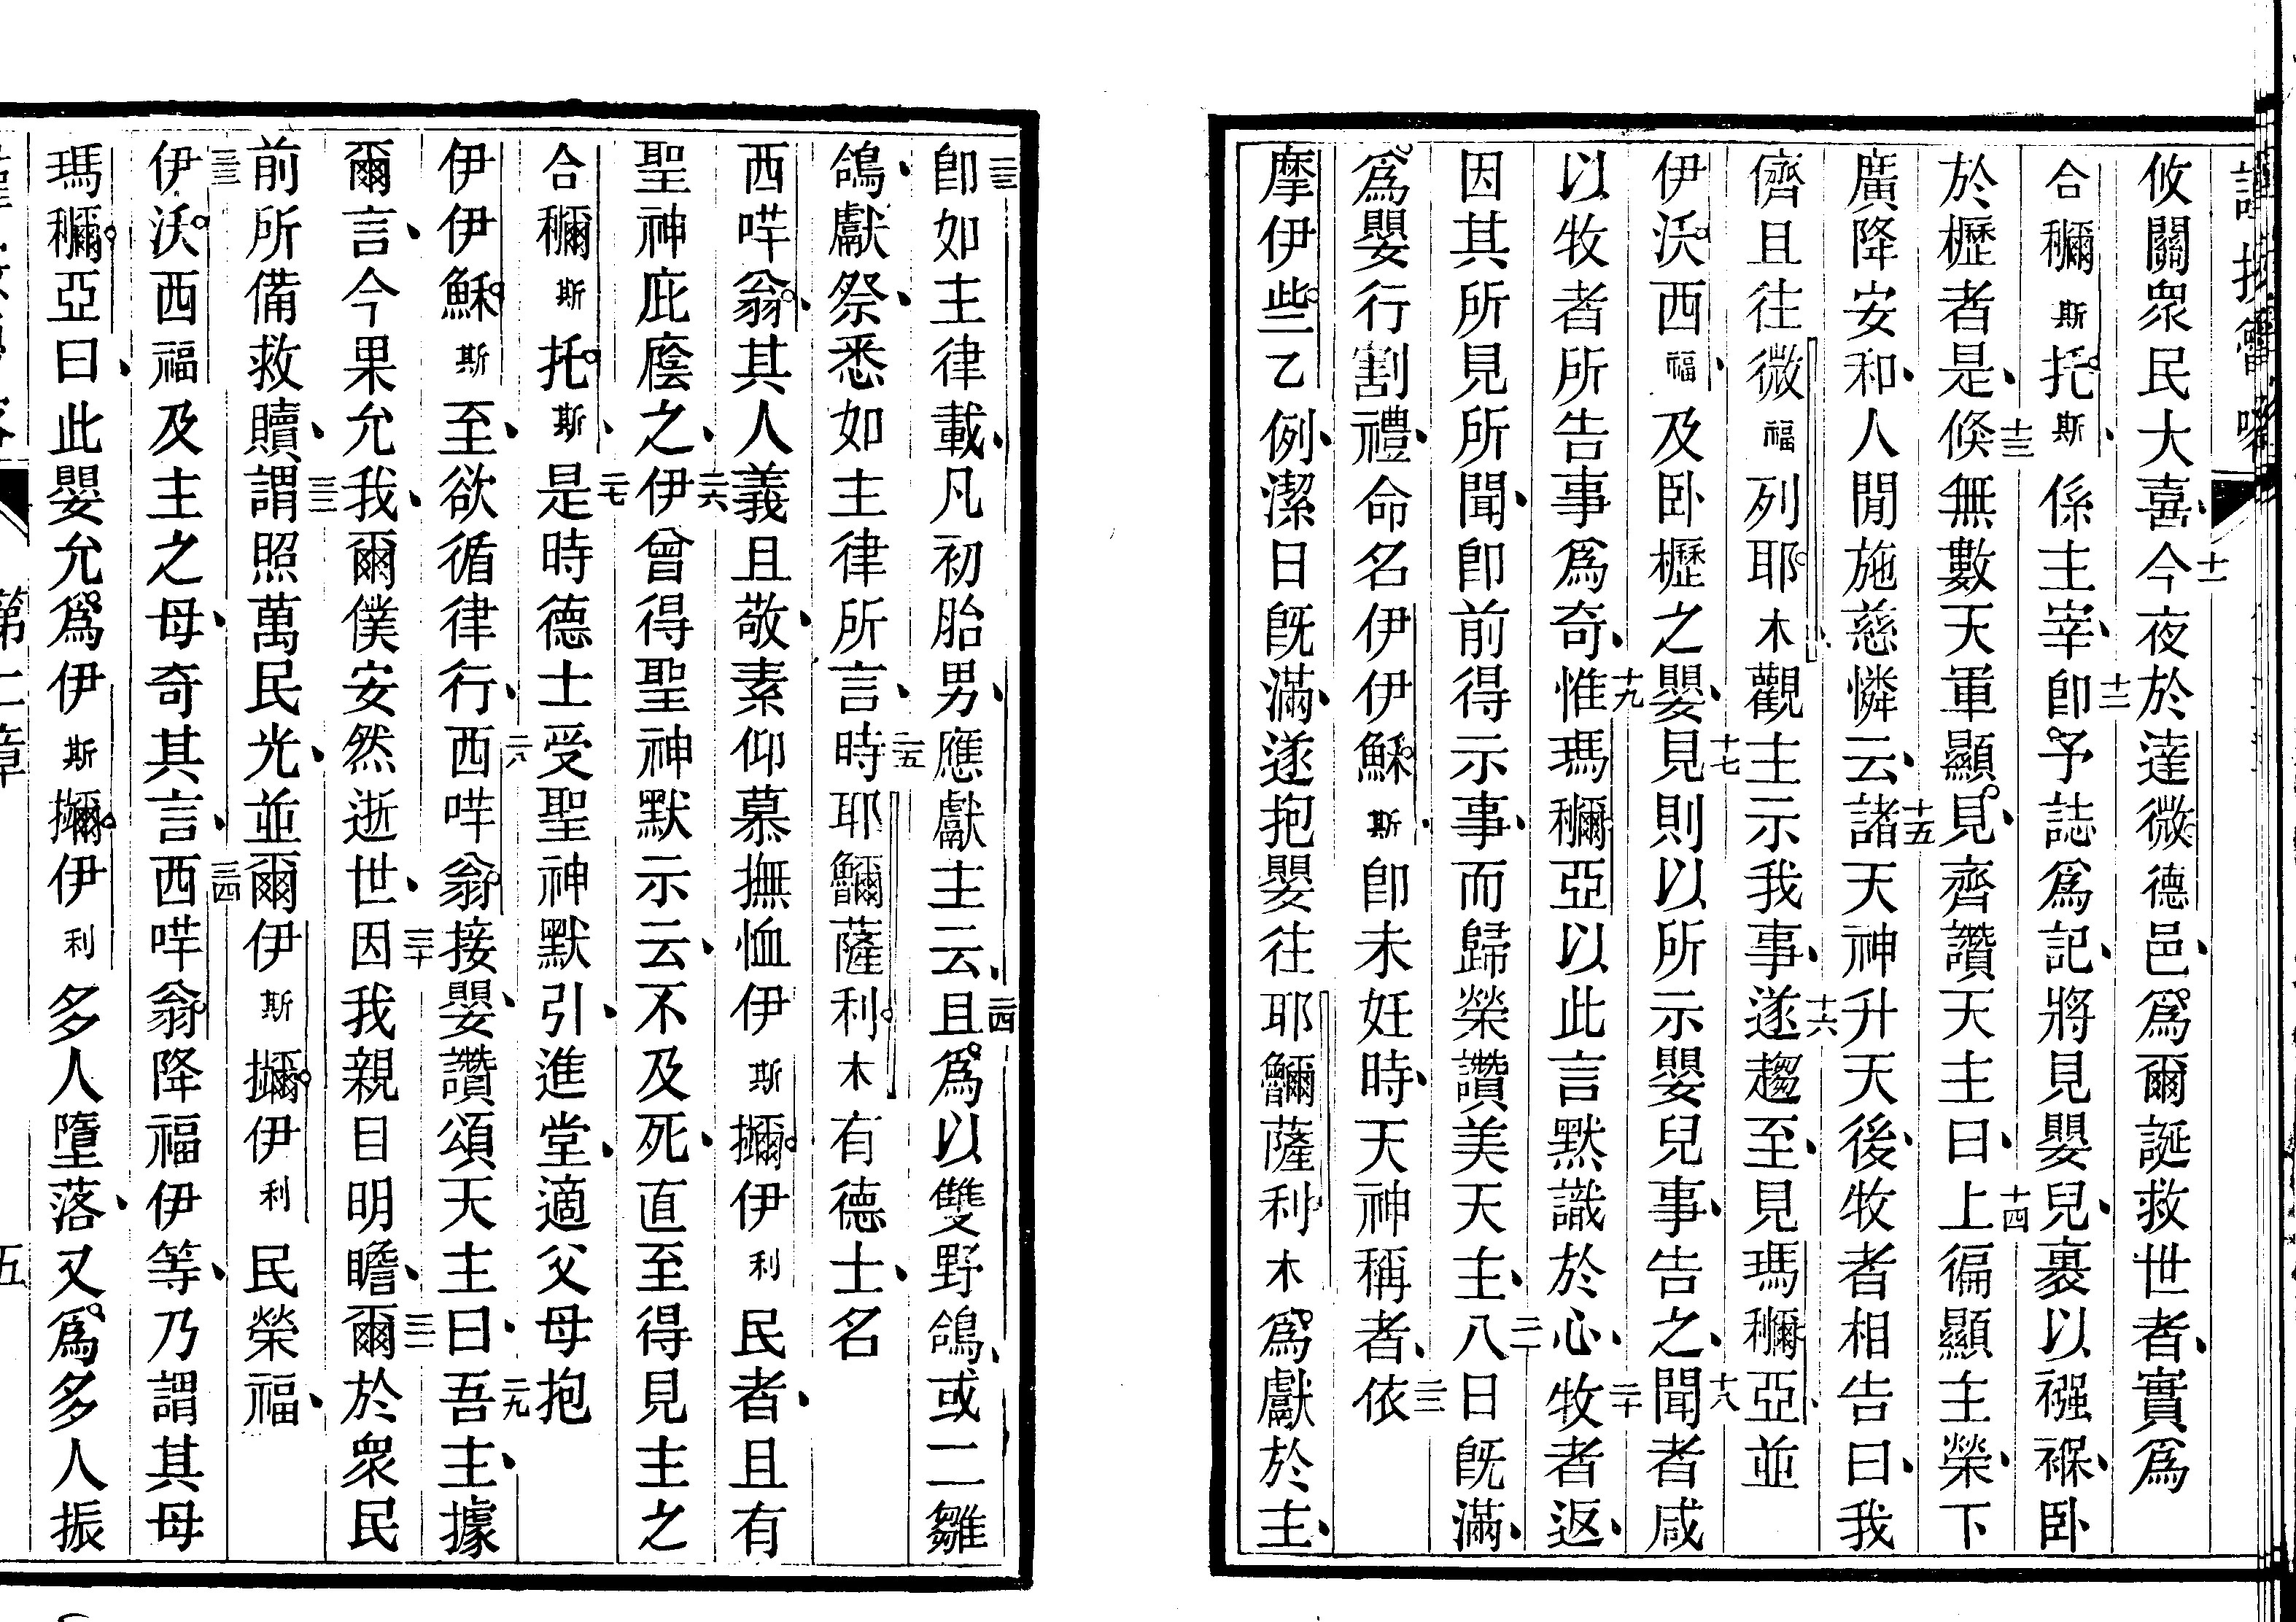 攸關眾民大喜、十一今夜於達微德邑、爲爾誕救世者、實爲
合穪斯托斯、係主宰、十二卽予誌爲記、將見嬰兒、裹以襁褓、卧
於櫪者是、十三倏無數天軍顯見、齊讚天主曰、十四上徧顯主榮、下
廣降安和、人閒施慈憐云、十五諸天神升天後、牧者相告曰、我
儕且往微福列耶木、觀主示我事、十六遂趨至、見瑪穪亞、並
伊沃西福、及卧櫪之嬰、十七見則以所示嬰兒事、告之、十八聞者咸
以牧者所告事爲奇、十九惟瑪穪亞以此言默識於心、二十牧者返、
因其所見所聞、卽前得示事、而歸榮讚美天主、二一八日旣滿、
爲嬰行割禮、命名伊伊穌斯、卽未妊時、天神稱者、二二依
摩伊些乙例、潔日旣滿、遂抱嬰往耶鱛薩利木、爲獻於主、
二三卽如主律載、凡初胎男、應獻主云、二四且爲以雙野鴿、或二雛
鴿、獻祭、悉如主律所言、二五時耶鱛薩利木有德士、名
西哶翁、其人義且敬、素仰慕撫恤伊斯攡伊利民者、且有
聖神庇廕之、二六伊曾得聖神默示云、不及死、直至得見主之
合穪斯托斯、二七是時德士受聖神默引、進堂、適父母抱
伊伊穌斯至、欲循律行、二八西哶翁接嬰、讚頌天主曰、二九吾主、據
爾言、今果允我、爾僕安然逝世、三十因我親目明瞻、三一爾於眾民
前所備救贖、三二謂照萬民光、並爾伊斯攡伊利民榮福、
三三伊沃西福及主之母、奇其言、三四西哶翁降福伊等、乃謂其母
瑪穪亞曰、此嬰允爲伊斯攡伊利多人墮落、又爲多人振
第二章
五